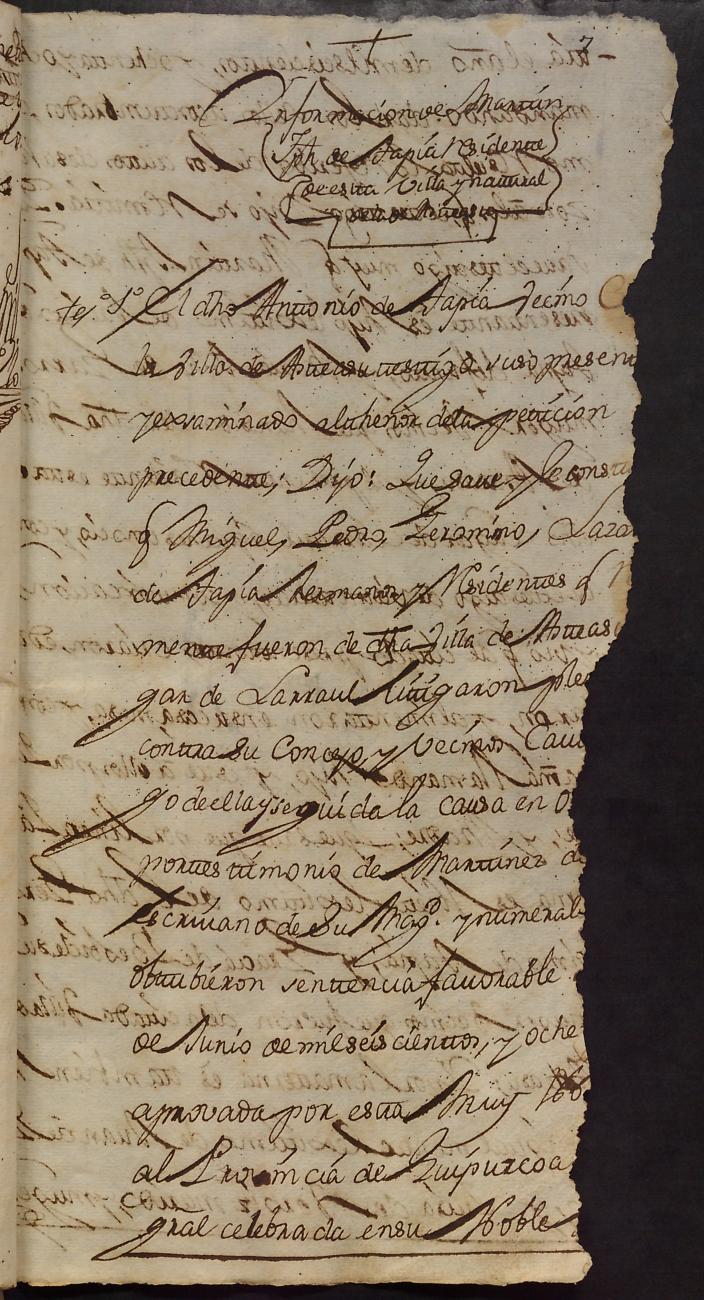 3
Informacion de Martin
Jph de Tapia Residente
de esta Villa y natural
te.º 1.º El dho Antonio de Tapia vecino
la Villa de Anteasu testigo suso present
y examinado al thenor dela petición
precedente; Dijo: Que save y le consta
q Miguel, Pedro, Geronimo, Laza
de Tapia hermanos y Residentes q
mente fueron de dha Villa de Anteas
gar de Larraul litigaron plei
contra Su Concejo, y Vecinos Cavi
go de ella y seguida la causa en
por testimonio de Martinez de
escrivano de Su Magd. y numeral
obtubieron sentencia favorable
de Junio de mil seis cientos, y oche
aprovada por esta Muy Nob
al Província de Guipuzcoa
gral celebrada en su Noble